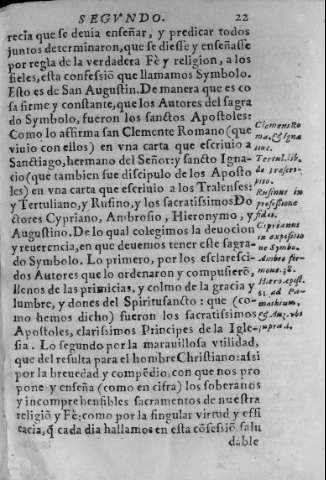 SEGVNDO. 22
recia que se deuia enseñar, y predicar todos
juntos determinaron, que se diesse y enseñasse
por regla de la verdadera Fè y religion, a los
fieles, esta confessiõ que llamamos Symbolo.
Esto es de San Augustin. De manera que es co
sa firme y constante, que los Autores del sagra
do Symbolo, fueron los sanctos Apostoles:
Como lo affirma san Clemente Romano (que
viuio con ellos) en vna carta que escriuio a
Sanctiago, hermano del Señor: y sancto Igna-
cio (que tambien fue discipulo de los Aposto
les) en vna carta que escriuio a los Tralenses:
y Tertuliano, y Rufino, y los sacratissimos Do
ctores Cypriano, Ambrosio, Hieronymo, y
Augustino. De lo qual colegimos la deuocion
y reuerencia, en que deuemos tener este sagra-
do Symbolo. Lo primero, por los esclaresci-
dos Autores que lo ordenaron y compusierõ,
llenos de las primicias, y colmo de la gracia y
lumbre, y dones del Spiritusancto: que (co-
mo hemos dicho) fueron los sacratissimos
Apostoles, clarissimos Principes de la Igle-
sia. Lo segundo por la marauillosa vtilidad,
que del resulta para el hombre Christiano: assi
por la breuedad y compẽdio, con que nos pro
pone y enseña (como en cifra) los soberanos
y incomprehensibles sacramentos de nuestra
religiõ y Fè: como por la singular virtud y effi
cacia, q̃ cada dia hallamos en esta cõfessiõ salu
dable
Clemens Ro
ma. & Igna
tius.
Tertul. lib.
de præscrip-
tio.
Rufinus in
professione
fidei.
Ciprianus
in expositio
ne Symbo.
Ambro. ser
mone. 38.
Hiero. epist.
61. ad Pa-
machium.
& Aug. vbi
supra d.